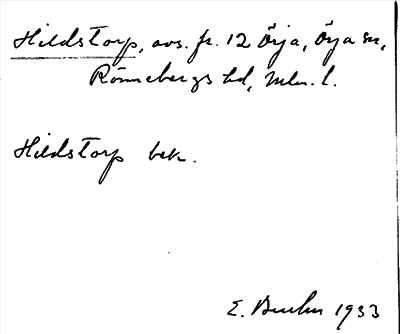 Hildstorp, avs. fr. 12 Örja, Örja sn,
Rönnebergs hd, Mlm. l.
Hildstorp bek.
E. 1933